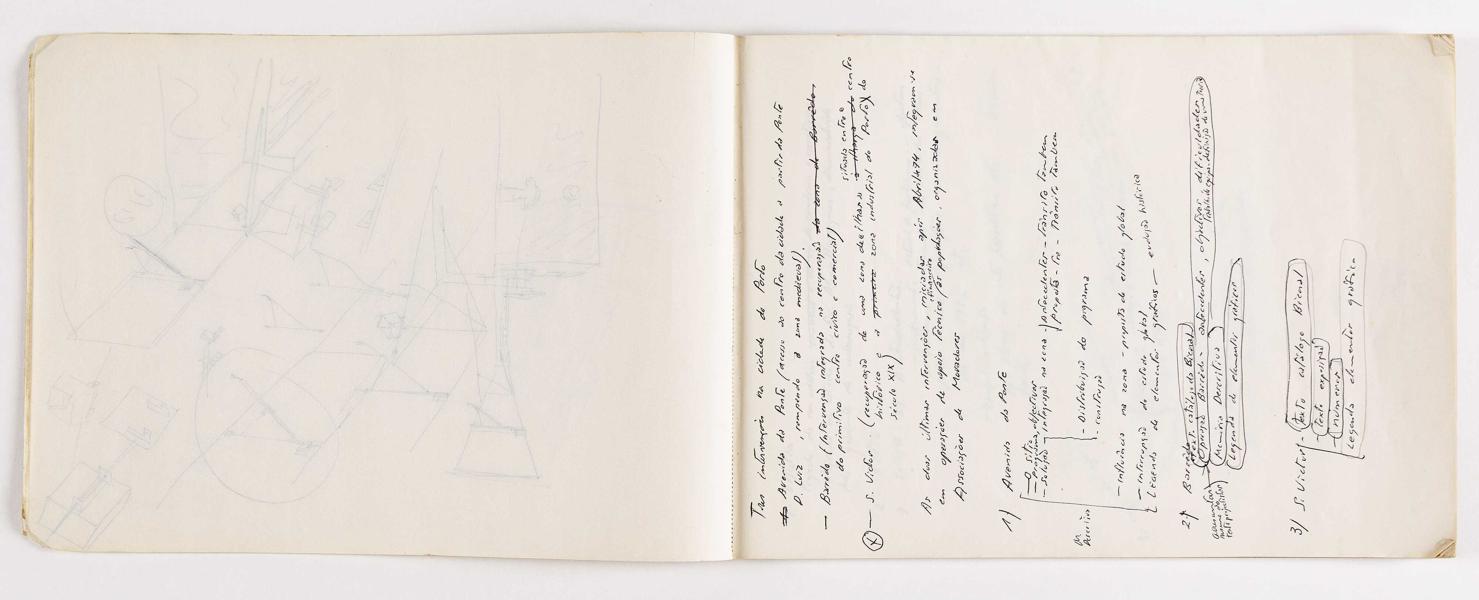 Tres intervenções na cidade do Porto
Avenida da Ponte (acesso ao centro da cidade a partir da Ponte
D. Luiz, rompendo a zona medieval).
— Barrêdo (Intervenção integrada na recuperação da zona do Barrêdo,
do primitivo centro cívico e comercial)
situada entre o
(x) — S. Victor. (recuperação de uma zona de ilhas a ilharga do centro
histórico e a primeira zona industrial do Porto) do
século XIX)
As duas últimas intervenções, iniciadas após Abril 74, integram-se
em operações de apoio técnico às populações, organizadas em
e financeiro
Associações de Moradores
1) Avenida da Ponte
— O sitio
— Programa, objectivos
— Solução — integração na zona — antecedentes — Trânsito também
proposta — Tra — Trânsito também
— Distribuição do programa
— construção
— influência na zona — proposta de estudo global
— interrupção do estudo global
Legenda de elementos gráficos — evolução histórica
2) Barrêdo
Text. catálogo da Bienal
Operação Barrêdo — antecedentes, objectivos, dificuldades
Memória Descritiva
Legenda de elementos gráficos
3) S. Victor — texto catálogo Bienal
— Texto exposição
— números
Legenda elementos gráficos